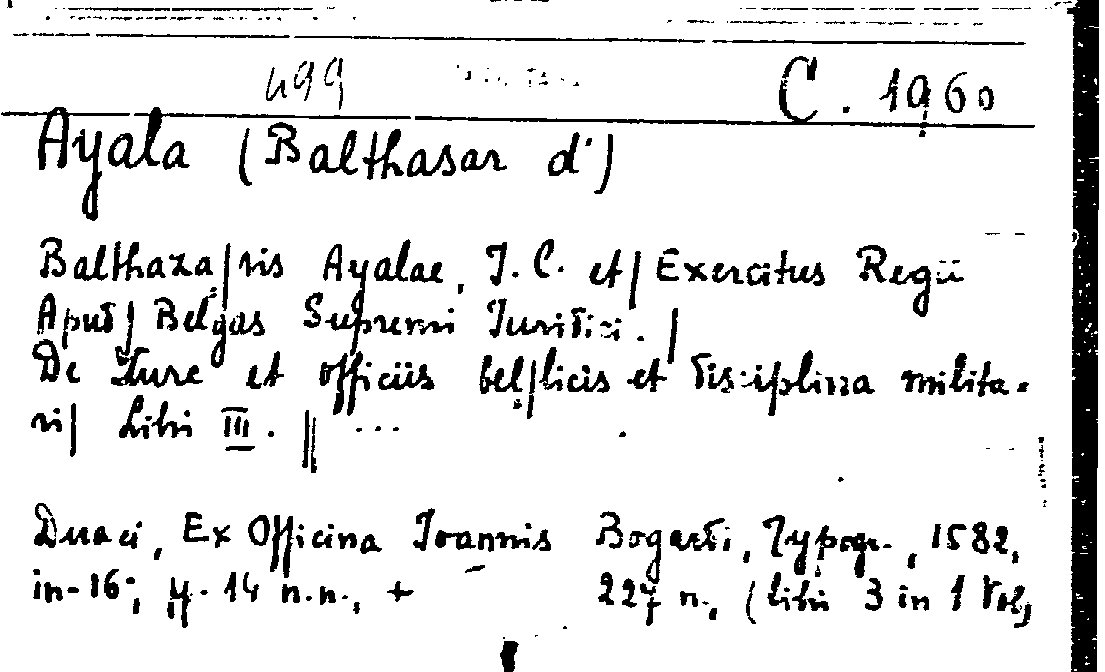 499 C. 1960
Ayala (Balthasar d')
Balthaza|ris Ayalae, I. C. et| Exercitus Regii
Apud| Belgas Supremi Iuridici. |
De Iure et officiis bel|licis et disciplina milita-
ri| Libri III. || ...
Duaci, Ex Officina Ioannis Bogardi, Typogr., 1582,
in-16°, ff. 14 n.n., + 227 n., (libri 3 in 1 Vol,